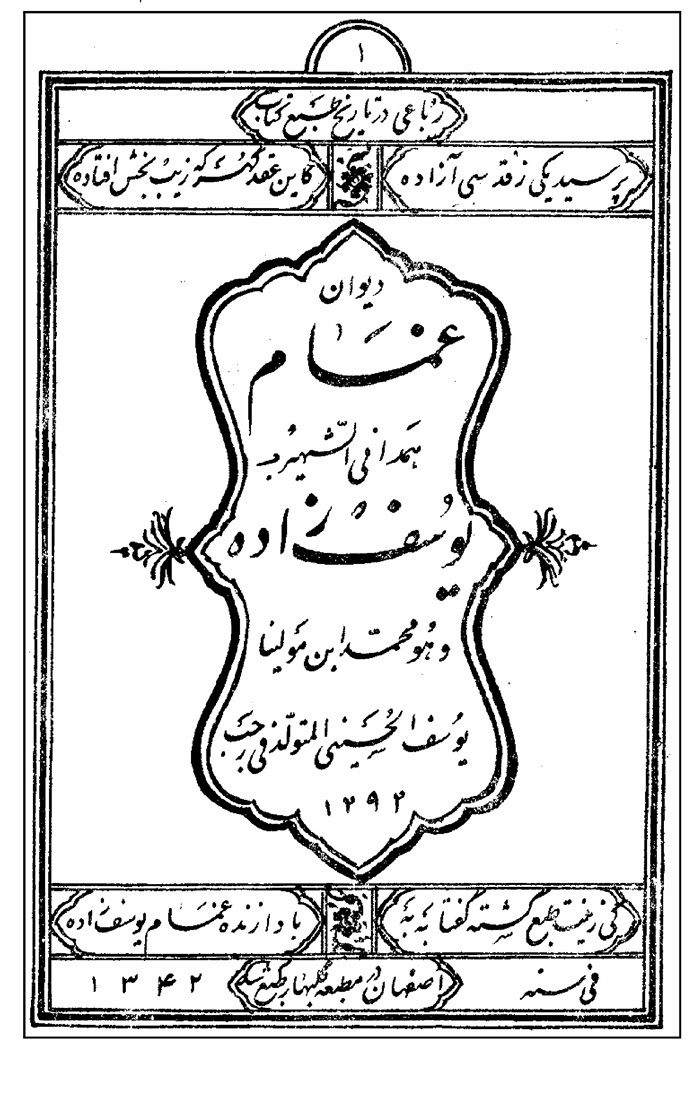 ۱
رباعی در تاریخ طبع کتاب
پرسید یکی ز قدسی آزاده کاین عقد گهر که زیب بخش افتاده
دیوان
غمام
همدانی الشهیر به
یوسف زاده
و هو محمد ابن مولینا
یوسف الحسینی المتولد فی رجب
۱۲۹۲
کی زینت طبع گشته گفتا به به بادا زنده غمام یوسف زاده
فی سنه اصفهان در مطبعه گلبهار طبع شد ۱۳۴۲